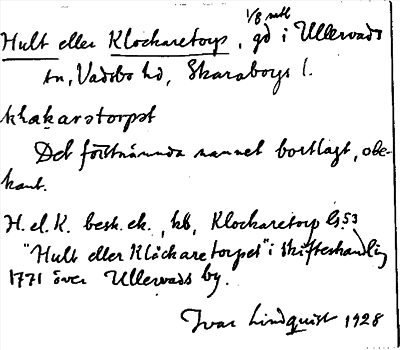 1/8 mtl
Hult eller Klockaretorp, gd i Ullervads
sn, Vadsbo hd, Skaraborgs l.
khakarstorpet
Det förstnämnda namnet bortlagt, obe-
kant.
H. el. K. besk. ek., kb, Klockaretorp GS. 53
"Hult eller Klåckaretorpet" i skifteshandling
1771 över Ullervads by.
Ivar Lindquist 1928